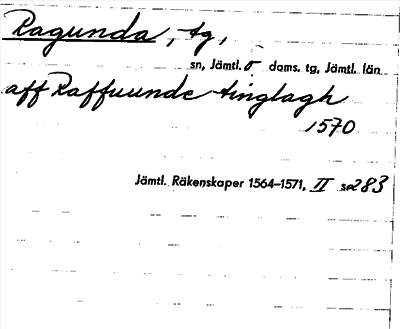 Ragunda, tg,
sn, Jämtl. o doms. tg, Jämtl. län
aff Raffuunde tinglagh
1570
Jämtl. Räkenskaper 1564–1571, II s. 283